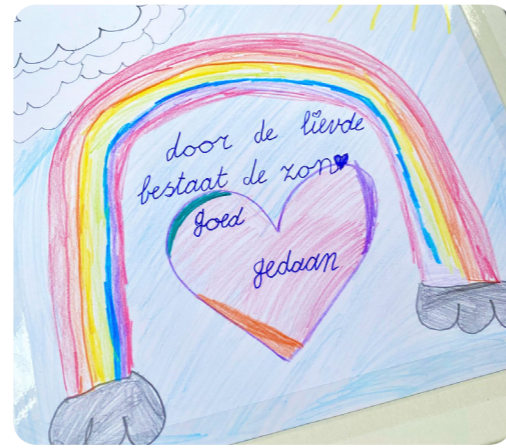 door de lievde
bestaat de zon
goed
gedaan